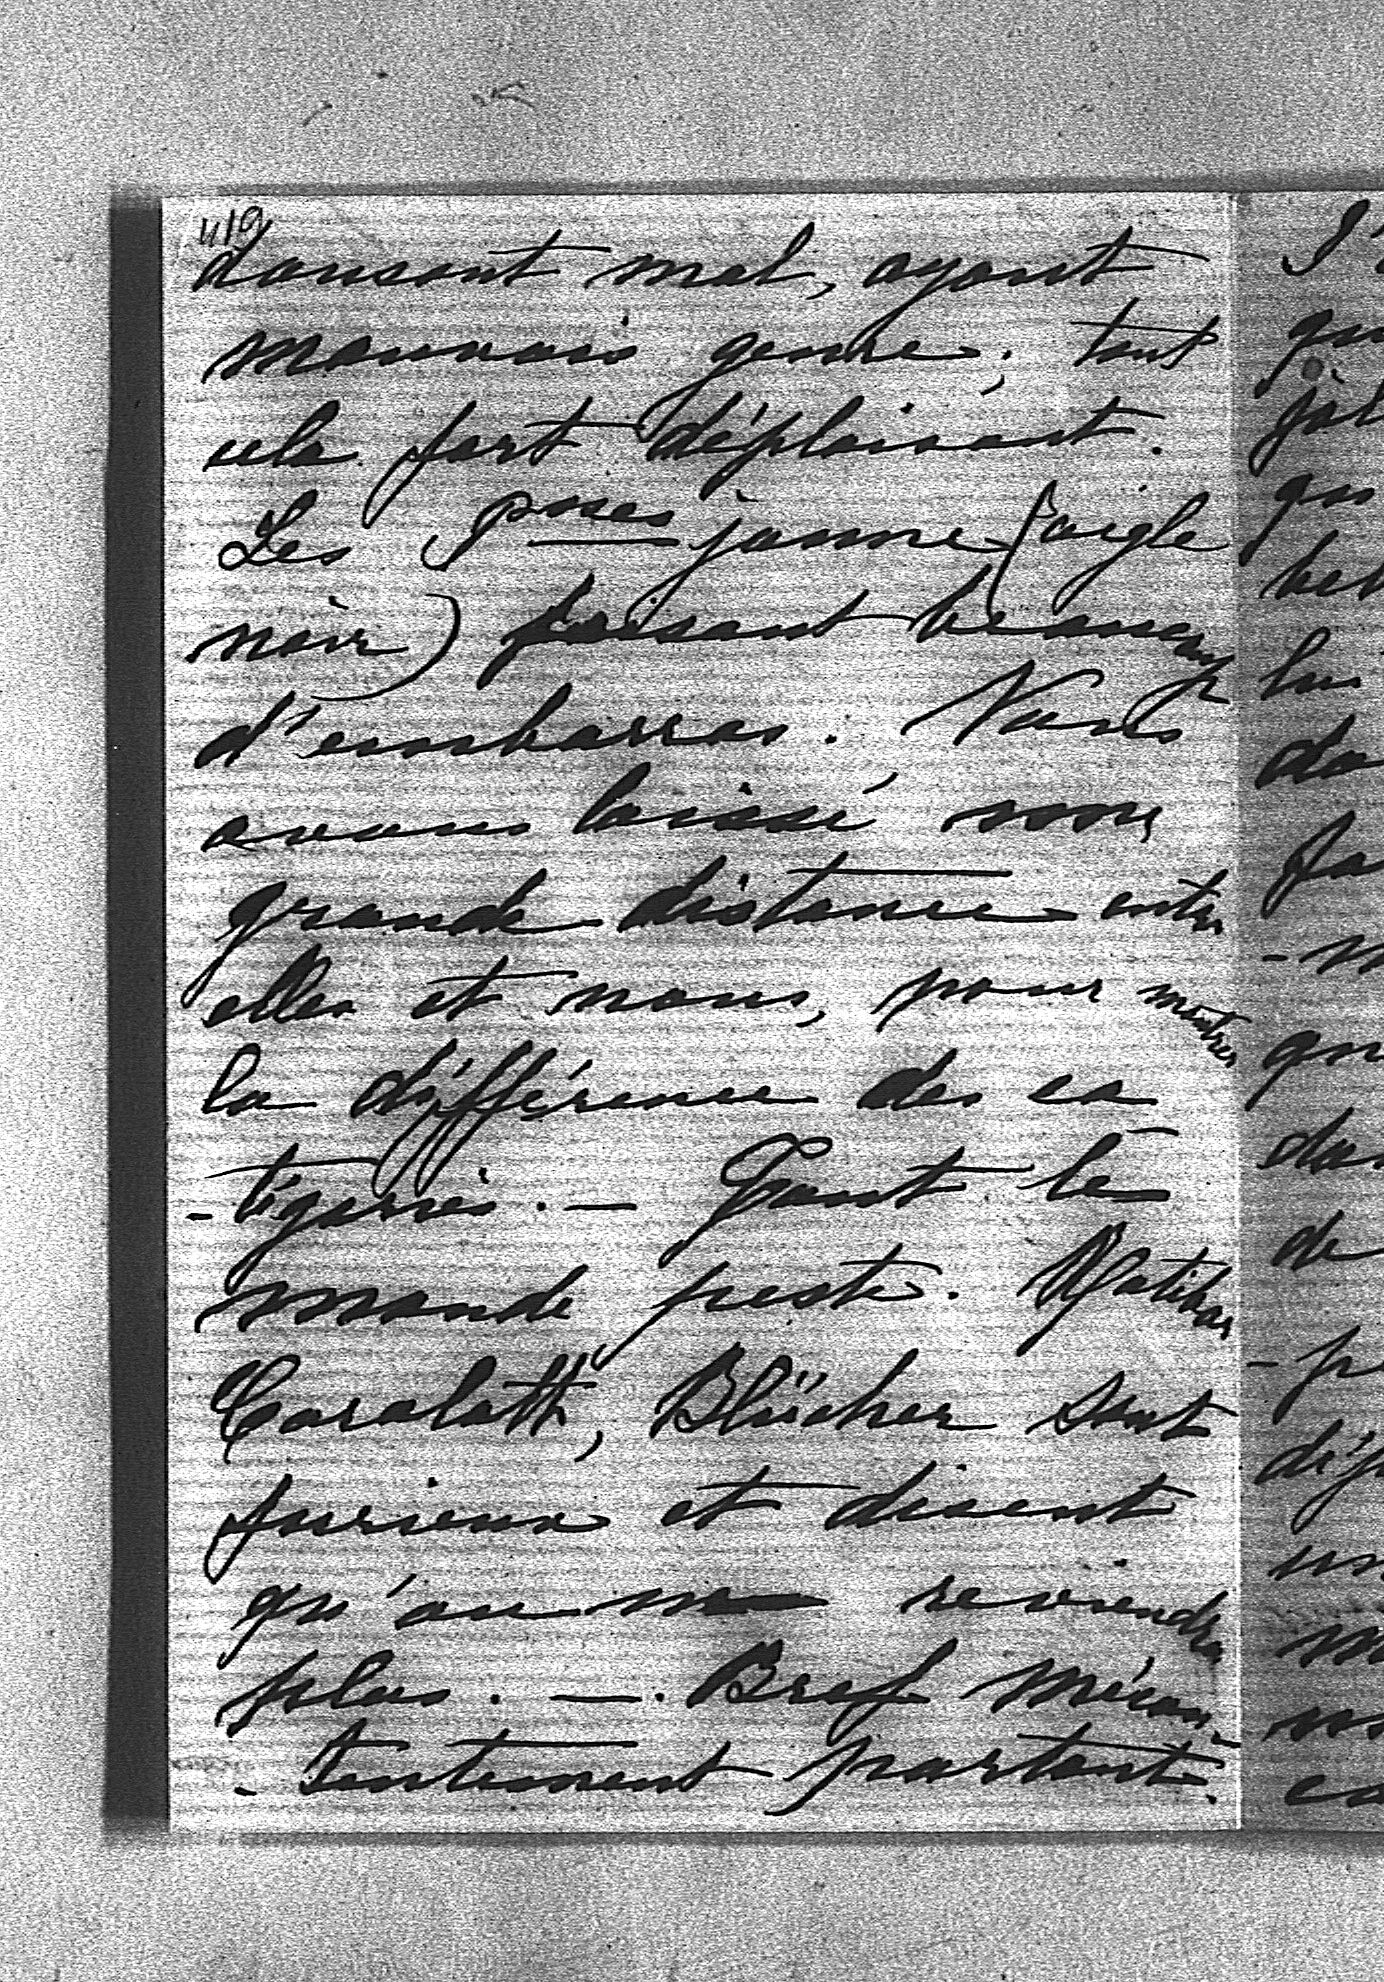 419
dansant mal, ayant
mauvais genre; tout
cela fort déplaisant.
Les Psses jaune (aigle
noir) faisant beaucoup
d'embarras. Nous
avons laissé une
grande distance entre
elles et nous, pour montrer
la différence des ca
-tégories. — Tout le
monde peste. Ratibor
Carolath, Blücher sont
furieux et disent
qu'on ne reviendra
plus. — Bref mécon-
-tentement partout.